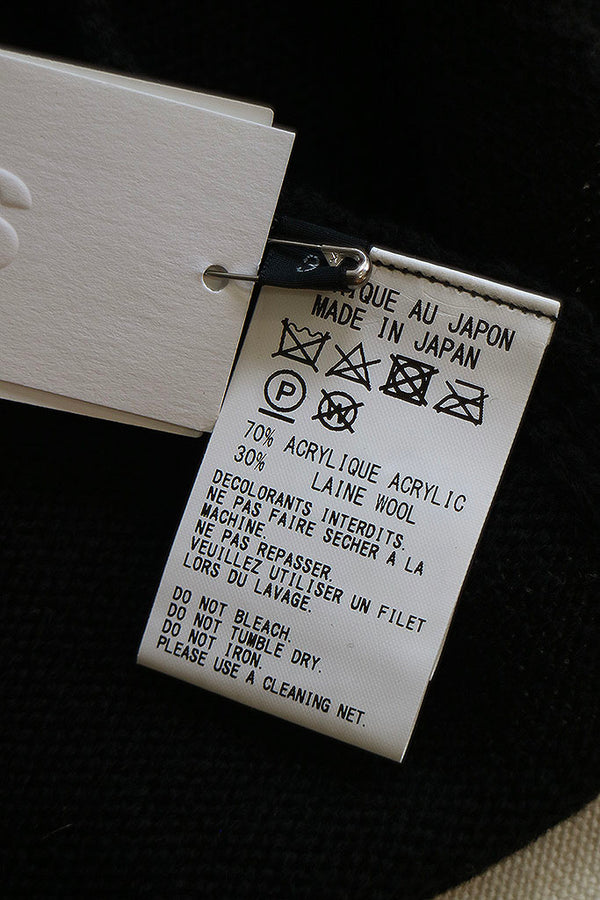 S
AU JAPON
MADE IN JAPAN
P
W
70% ACRYLIQUE ACRYLIC
30% LAINE WOOL
DECOLORANTS INTERDITS.
NE PAS FAIRE SECHER A LA
MACHINE.
NE PAS REPASSER.
VEUILLEZ UTILISER UN FILET
LORS DU LAVAGE.
DO NOT BLEACH.
DO NOT TUMBLE DRY.
DO NOT IRON.
PLEASE USE A CLEANING NET.